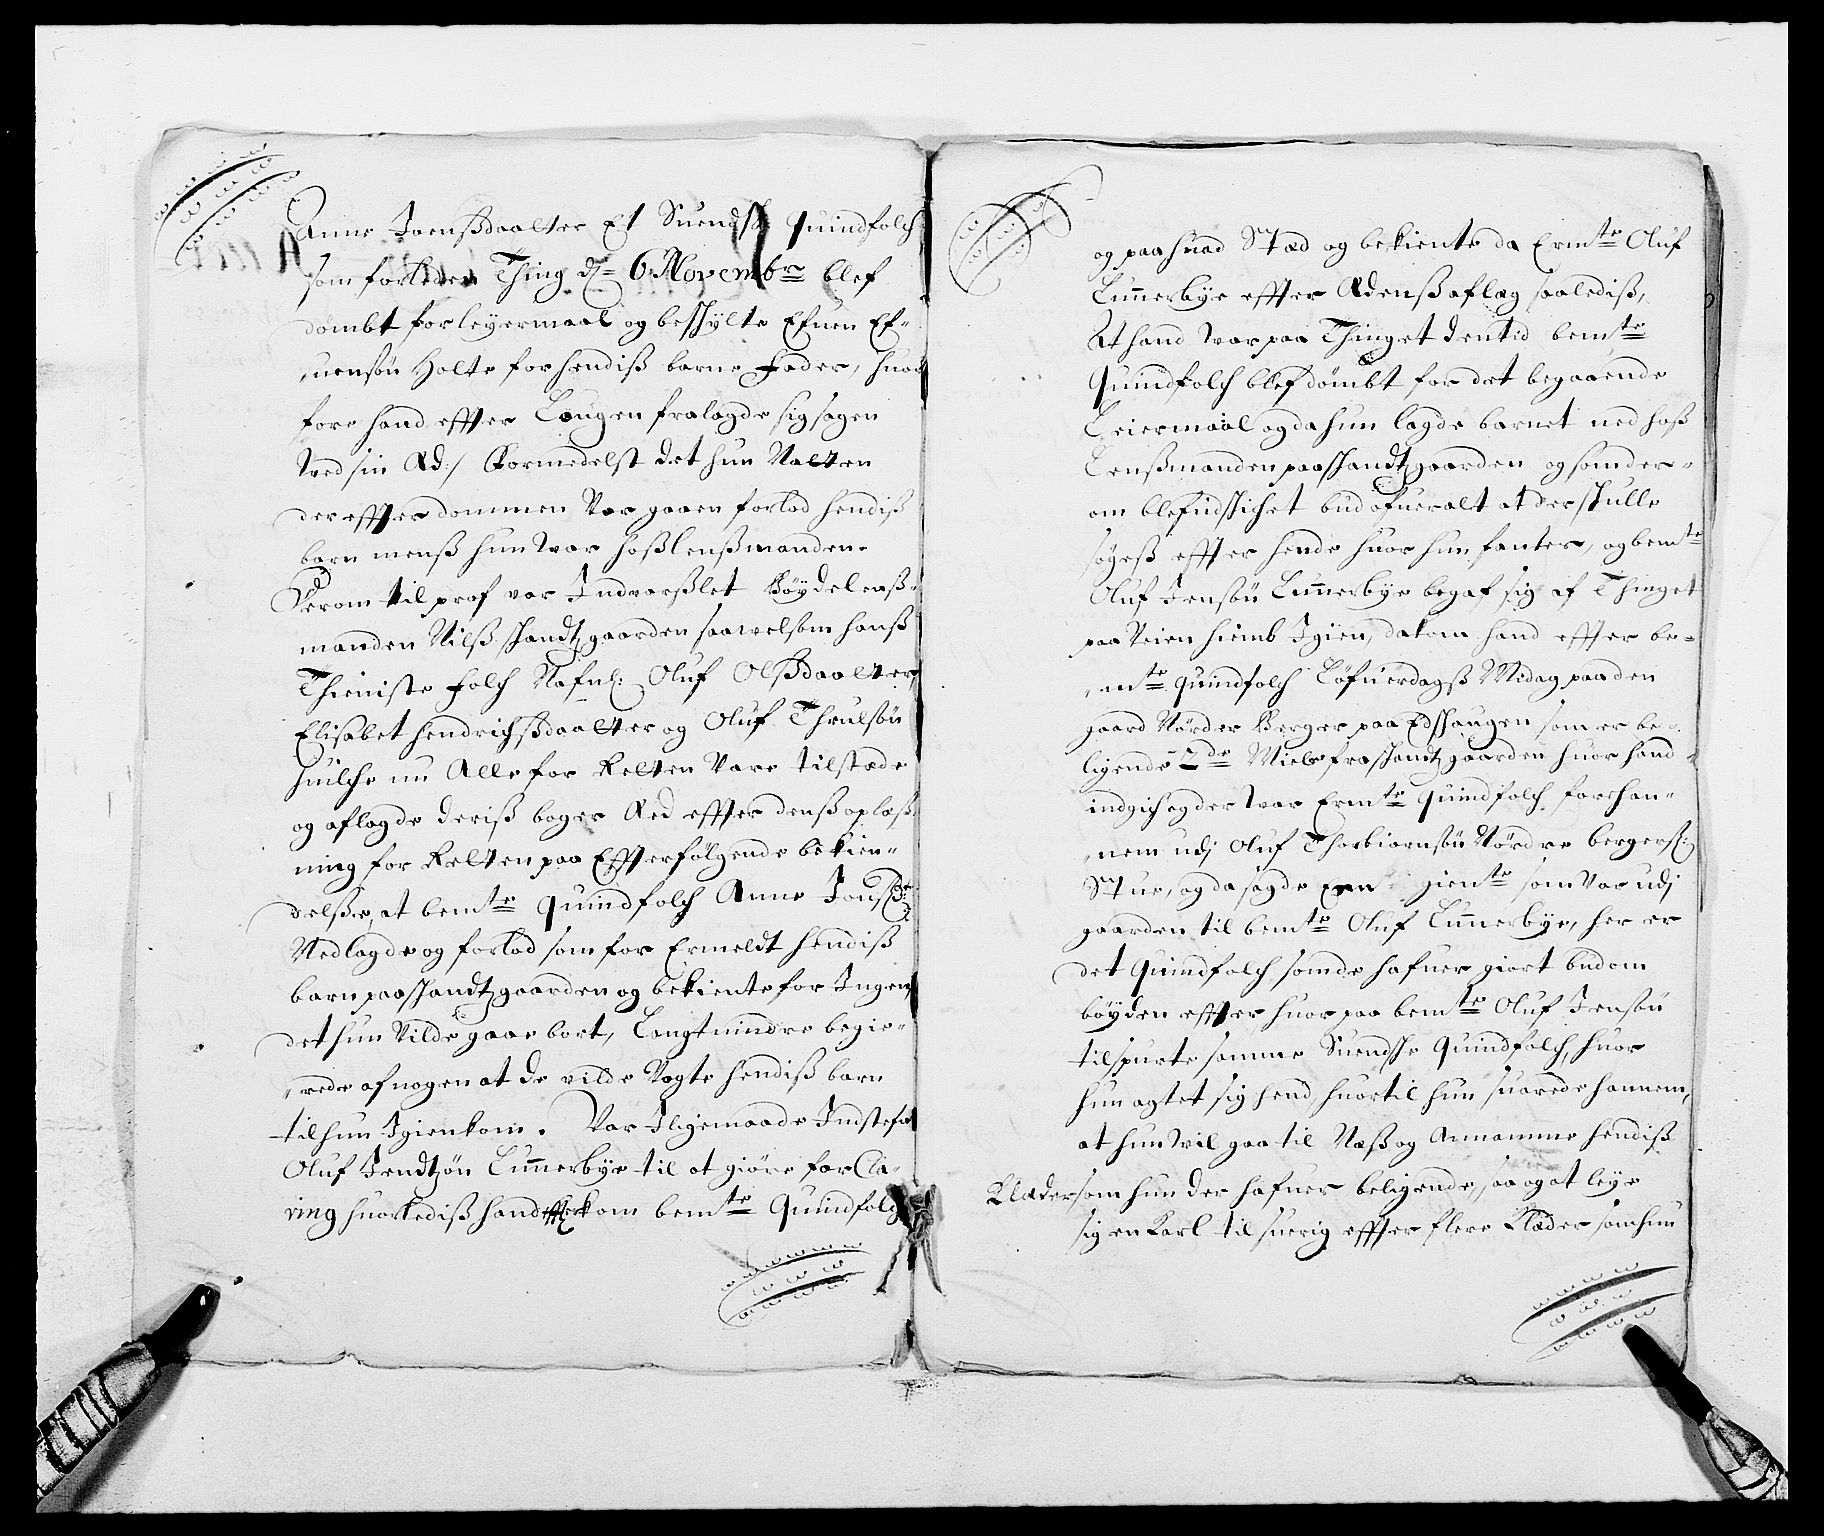 Anne Joensdaatter Et Suendsk quindfolch
som forleden Thing d= 6 Novembr blef
dømbt for leyermaal og beskylte Efuen Ef-
uensøn Holte for hendiß barne fader, huor
fore hand effter Laugen fralagde sig sagen
wed sin Æd:/ Formedelst det hun Natten
der effter dommen Var gaaen forlod hendiß
barn menß hun war hoß lenßmanden.
Herom til prof var Indvarßlet Bøydelenß-
manden Nilß skandtzgaarden saawelsom hanß
Thieniste folch Nafnl: Oluf Olßdaatter,
Elisabet hendrichßdaatter og Oluf Thrulsøn
huilche nu Alle for Retten Vare tilstæde
og aflagde deriß boger Æd effter denß oplæß
ning for Retten paa Effterfølgende bekien-
delße, at bemte quindfolch Anne Jonß D:
Nedlagde og forlod som før Ermeldt hendiß
barn paa skandtzgaarden og bekiente for Ingen,
det hun Vilde gaae bort, Langt mindre begie-
rede af nogen at de vilde Vagte hendiß barn
til hun Igien kom. Var Iligemaade Instefnt
Oluf Jendtzøn Lunnerbye til at giøre forCla-
ring huorlediß hand effterkom bemte Quindfolch
og paa huad Stæd og bekiente da Ermte Oluf
Lunnerbye effter Ædenß aflæg saalediß,
At hand war paa Thinget den tid bemte
Quindfolch blef dømbt for det begaaende
Leiermaal og da hun lagde barnet ned hoß
Lenßmanden paa skandtzgaarden og som der-
om blef udskichet bud ofueralt at der skulle
søgeß effter hende huor hun fanteß, og bemte
Oluf Jensøn Lunnerbye begaf sig af Thinget
paa Veien hiemb Igien, da kom hand effter be-
mte quindfolch Løfuerdagß Midag paa den
gaard Nørder Berger paa Edskaugen som er be-
ligende 2de Miele fra skandtzgaarden huor hand
indgich og der war Ermte quindfolch for han-
nem udj Oluf Thorbiørnsøn Nørdre bergerß:
Stue, og da sagde Een giente som Var udj
gaarden til bemte Oluf Lunnerbye, her er
det quindfolch som de hafuer giort bud om
bøyden effter huor paa bemte Oluf Jensøn
tilspurte samme Suendske Quindfolch, huor
hun agtet sig hend, huortil hun suarede hannem,
at hun wil gaa til Næß og Annamme hendiß
Klæder som hun der hafuer beligende, saa og at leye
sig en Karl til suerig effter flere Klæder som hun